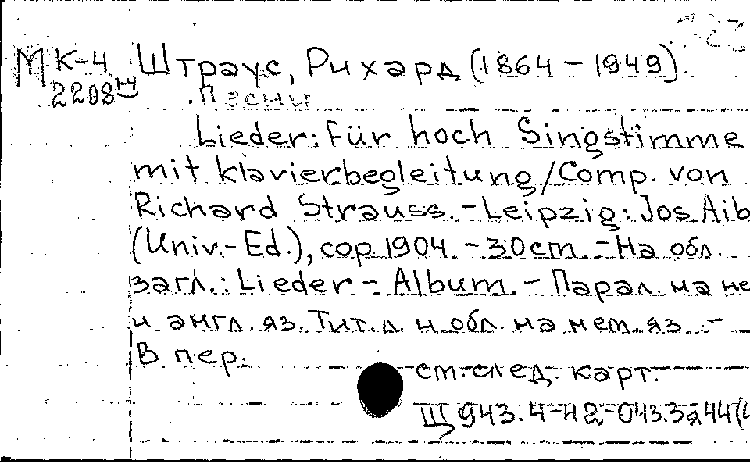 МК-4 Штраус, Рихард (1864 - 1949).
2208 Песни
Lieder: Für hoch Singstimme
mit klavierbegleitung/Comp. von
Richard Strauss. - Leipzig: Jos Aib
(Univ.-Ed.), cop 1904. - 30cm. - На обл.
загл.: Lieder - Album. - Парал. на не
и англ. яз. Тит. л. и обл. на нем. яз. -
В пер.
см. след. карт.
Щ 943.4-